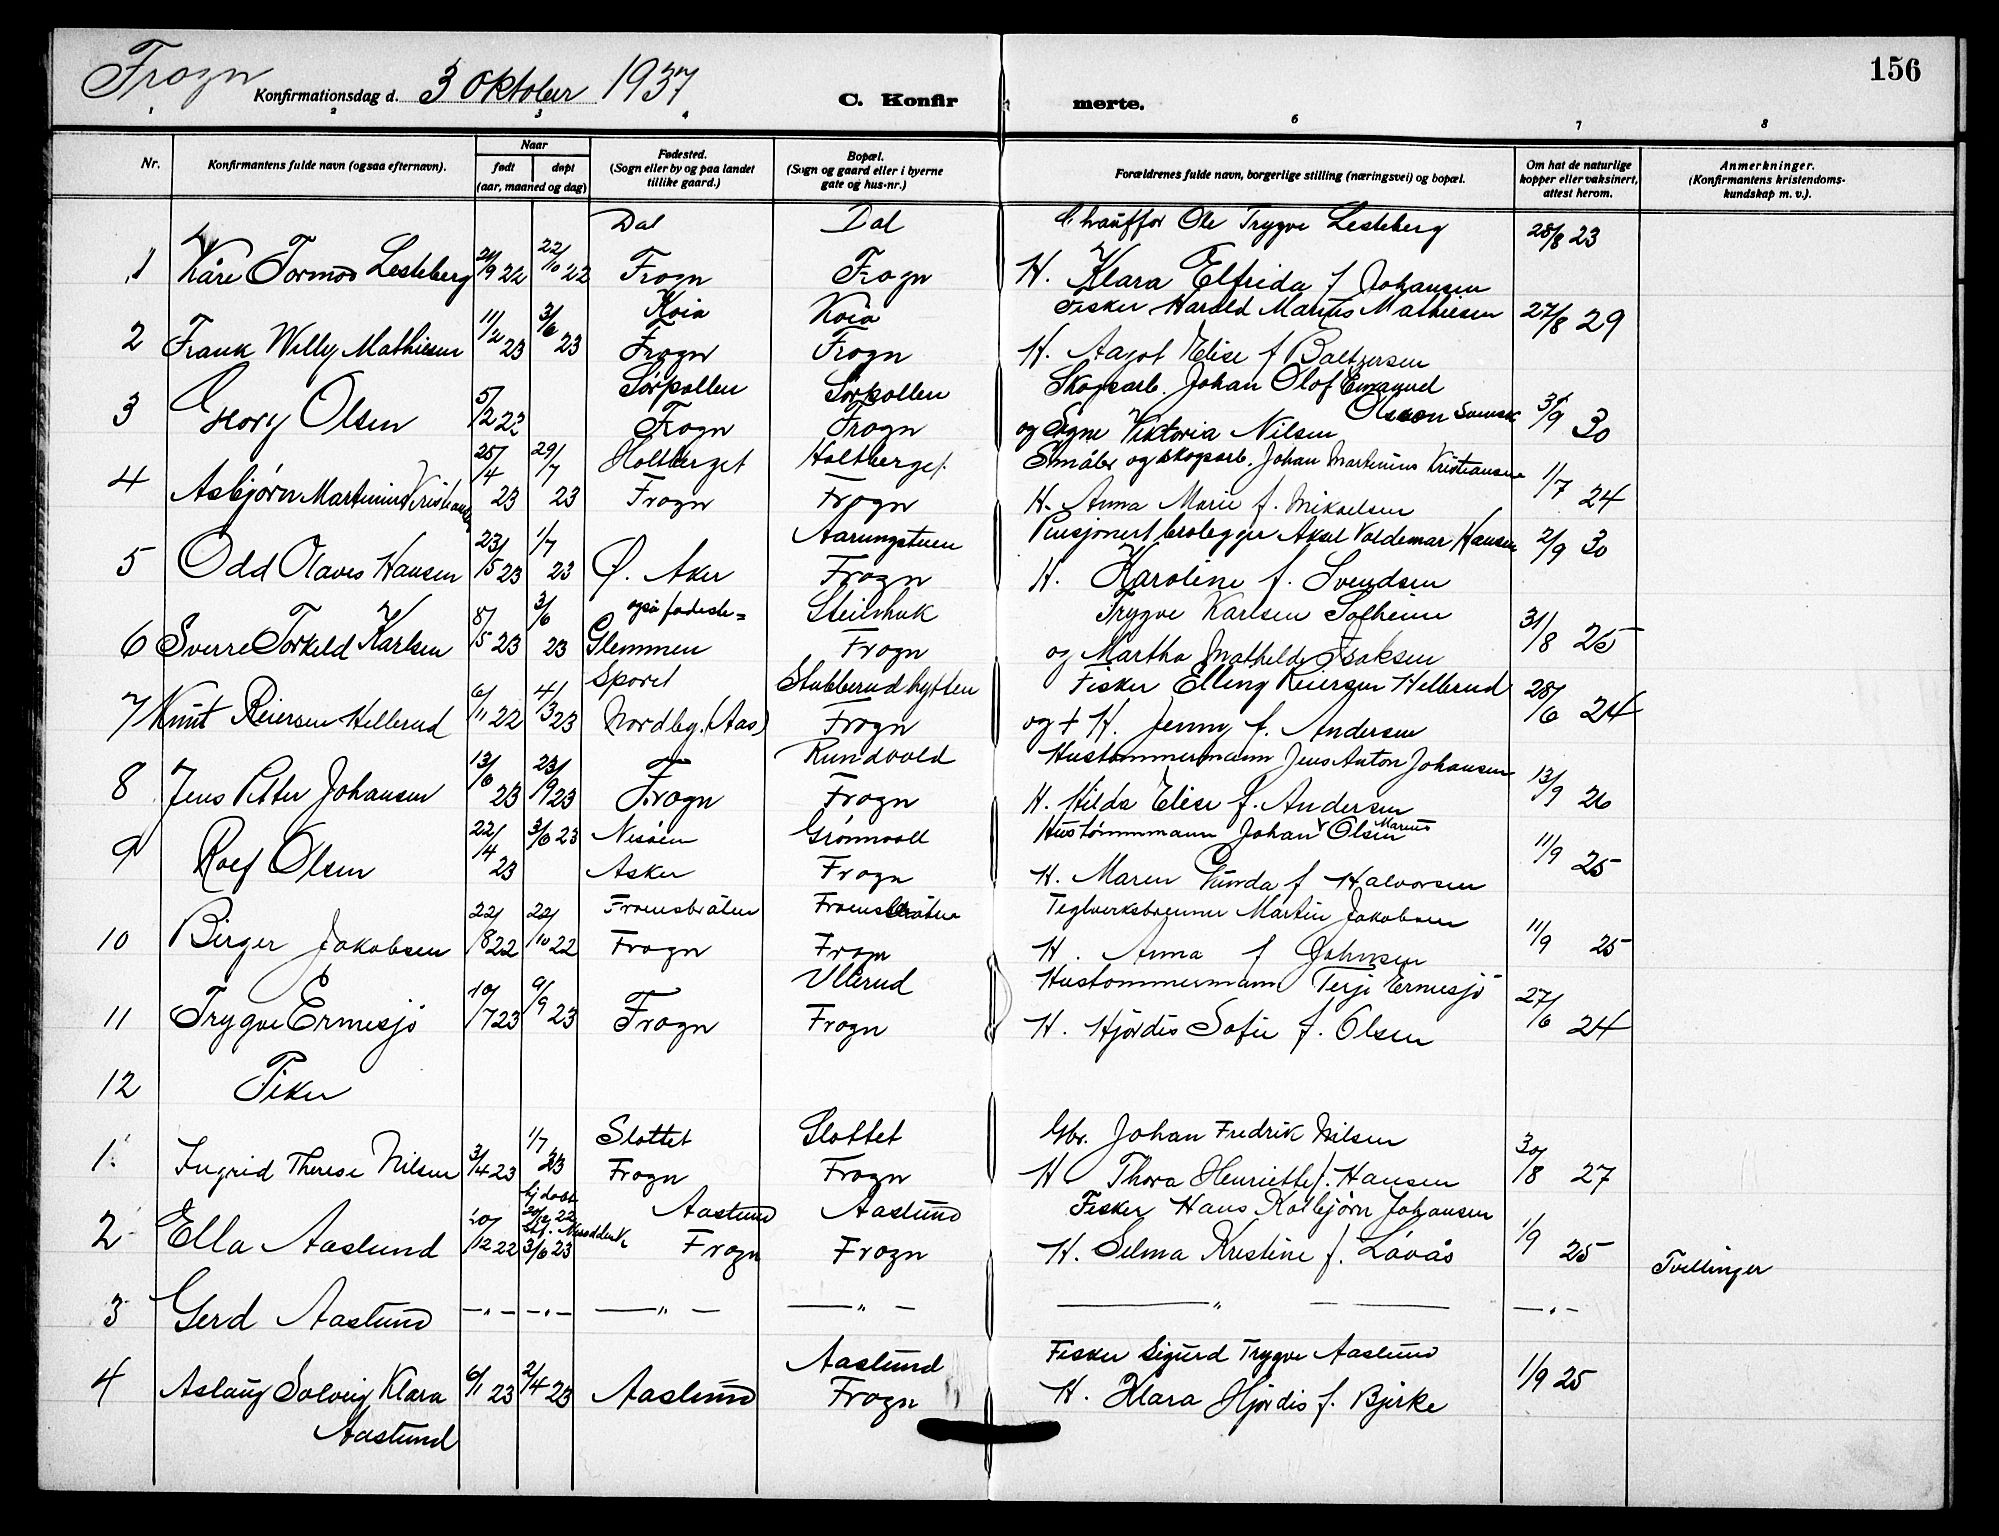 Frogn
Konfirmationsdag d. 3 Oktober 1937
C. Konfirmerte.
156
1 2 3 4 6 7 8
Nr.
Konfirmantens fulde navn (ogsaa efternavn).
Naar
født
døpt
(aar, maaned og dag)
Fødested.
(Sogn eller by og paa landet
tillike gaard.)
Bopæl.
(Sogn og gaard eller i byerne
gate og hus-nr.)
Forældrenes fulde navn, borgerlige stilling (næringsvei) og bopæl.
Om hat de naturlige
kopper eller vaksinert,
attest herom.
Anmerkninger.
(Konfirmantens kristendoms-
kundskap m. v.).
Dal Dal Chauffør Ole Trygve Lesteberg 28/8 23
1 Kåre Tormod Lesteberg 21/9 22 22/10 22 Frogn Frogn H. Klara Elfrida f Johansen
Koia Koia Fisker Harald Marius Mathiesen 27/8 29
2 Frank Willy Mathiesen 11/2 23 3/6 23 Frogn Frogn H. Aagot Elise f Baltzersen
Sørpollen Sørpollen Skogsarb. Johan Olof Emanuel
Olsson Svensk
3 Georg Olsen 5/2 22 Frogn Frogn og Signe Viktoria Nilsen 3/9 30
Holtberget Holtberget Småbr og skogsarb. Johan Martinius Kristiansen
4 Asbjørn Martinius Kristiansen 25/4 23 29/7 23 Frogn Frogn H. Anna Marie f. Mikaelsen 1/7 24
Aarungstuen Pensjonert brolegger Aksel Valdemar Hansen 2/9 30
5 Odd Olaves Hansen 23/5 23 1/7 23 Ø. Aker Frogn H. Karoline f. Svendsen
også fødeste= Steilshuk Trygve Karlsen Solheim
6 Sverre Torkeld Karlsen 8/5 23 3/6 23 Glemmen Frogn og Martha Mathilde Isaksen 31/8 25
Sporet Stubberudhytten Fisker Elling Reiersen Hellerud
7 Knut Reiersen Hellerud 6/11 22 4/3 23 Nordby (Aas) Frogn og + H. Jenny f. Andersen 28/6 24
Rundvold Hustømmermann Jens Anton Johansen
8 Jens Petter Johansen 13/6 23 23/9 23 Frogn Frogn H. Hilda Elise f. Andersen 13/9 26
22/4 23 3/6 23 Nesøen Grønnvoll Hustømmmann Johan Marius Olsen
9 Rolf Olsen Asker Frogn H. Maren Gunda f Halvorsen 11/9 25
Froensbråten Froensbråten Teglverksbrenner Martin Jakobsen
10 Birger Jakobsen 22/8 22 22/10 22 Frogn Frogn H. Anna f Johnsen 11/9 25
Ullerud Hustømmermann Terje Ermesjø
11 Trygve Ermesjø 10/7 23 9/9 23 Frogn Frogn H. Hjørdis Sofie f. Olsen 27/6 24
12 Piker
Slottet Slottet Gbr. Johan Fredrik Nilsen
1. Ingrid Therese Nilsen 3/4 23 1/7 23 Frogn Frogn H Thora Henriette f. Hansen 30/8 27
hj.døbt 20/12 22 Aaslund Aaslund Fisker Hans Kolbjørn Johansen
2 Ella Aaslund 20/12 22 3/6 23 Frogn Frogn H. Selma Kristine f. Løvås 1/9 25 Tvillinger
3 Gerd Aaslund —„— —„— —„— —„— —„— —„—
Aaslund Fisker Sigurd Trygve Aaslund
4 Aslaug Solveig Klara 6/1 23 2/4 23 Aaslund Frogn H. Klara Hjørdis f. Bjerke 1/9 25
Aaslund